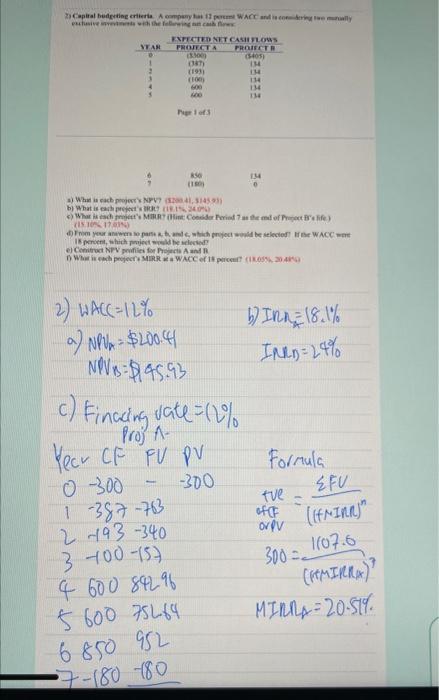 2) Capital budgeting criteria. A company has 12 percent WACC and is considering two mutually
exclusive investments with the following net cash flows:
EXPECTED NET CASH FLOWS
YEAR PROJECT A PROJECT B
0 ($300) ($405)
1 (387) 134
2 (193) 134
3 (100) 134
4 600 134
5 600 134
Page 1 of 3
6 850 134
7 (180) 0
a) What is each project's NPV? ($200.41, $145.93)
b) What is each project's IRR? (18.1%, 24.0%)
c) What is each project's MIRR? (Hint: Consider Period 7 as the end of Project B's life.)
(15.10%, 17.03%)
d) From your answers to parts a, b, and c, which project would be selected? If the WACC were
18 percent, which project would be selected?
e) Construct NPV profiles for Projects A and B.
f) What is each project's MIRR at a WACC of 18 percent? (18.05%, 20.48%)
2) WACC=12%
a) NPVA = $200.41
NPVB = $145.93
b) IRRA = 18.1%
= 24%
c) rate = 12%
Proj A-
Year CF FV PV
0 -300 - -300
1 -387 -763
2 -193 -340
3 -100 -157
4 600 842.96
5 600 752.64
6 850 952
7 -180 -180
Formula
+ve of CF or PV = ΣFV / (1+MIRR)^n
300 = 1107.6 / (1+MIRRA)^7
MIRRA = 20.51%